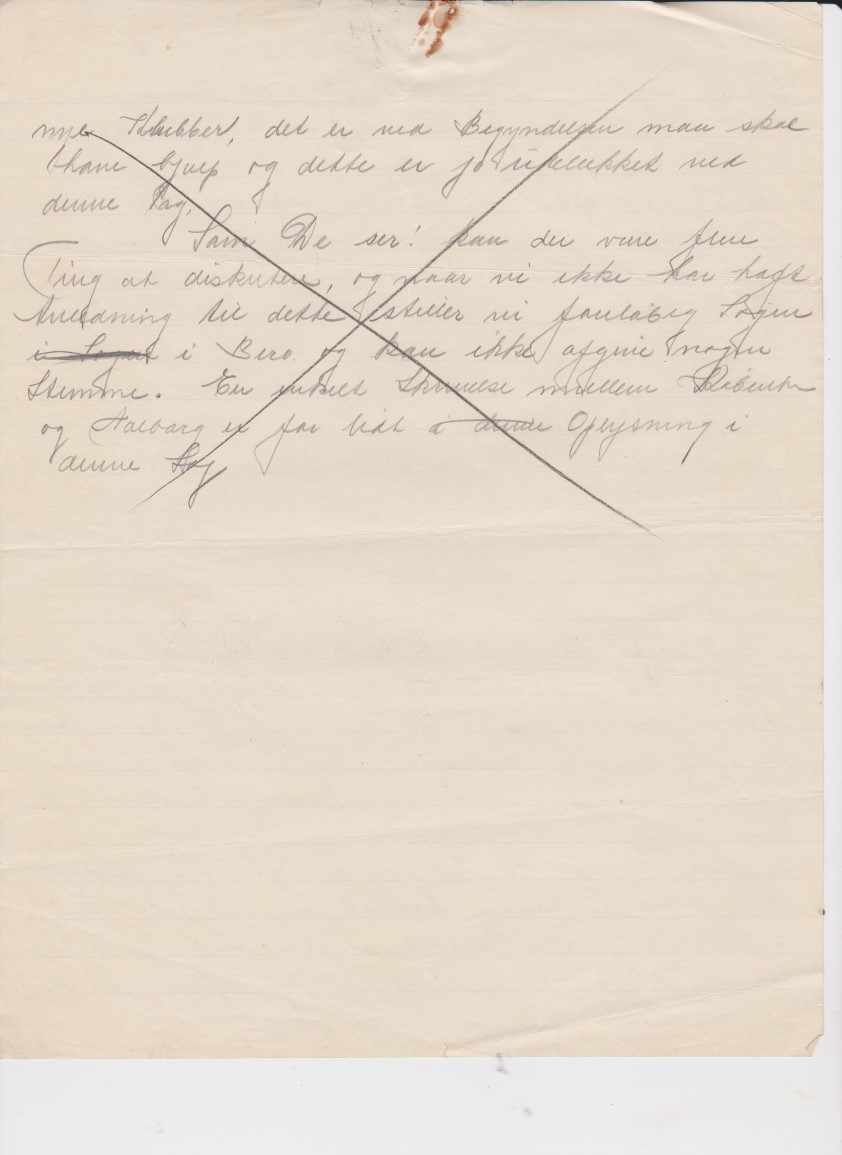 nye Klubber, det er ved Begyndelsen man skal
have Hjælp og dette er jo udelukket ved
denne Sag.
Som De ser! kan der være flere
Ting at diskutere, og naar vi ikke har haft
Anledning til dette stiller vi foreløbig Sagen
i Sagen i Bero og kan ikke afgive nogen
Stemme. En enkelt Skrivelse mellem
og Aalborg er for lidt i denne Oplysning i
denne Sag